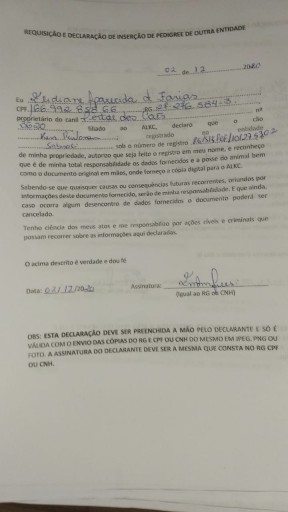 REQUISIÇÃO E DECLARAÇÃO DE INSERÇÃO DE PEDIGREE DE OUTRA ENTIDADE
02 de 12 2020
Eu Aparecida d Farias
CPF RG
proprietário do canil dos nº
filiado ao ALKC, declaro que o cão
registrado na entidade
sob o número de registro
de minha propriedade, autorizo que seja feito o registro em meu nome, e reconheço
que é de minha total responsabilidade os dados fornecidos e a posse do animal bem
como o documento original em mãos, onde forneço a cópia digital para o ALKC.
Sabendo-se que quaisquer causas ou consequências futuras recorrentes, oriundas por
informações deste documento fornecido, serão de minha responsabilidade. E que ainda,
caso ocorra algum desencontro de dados fornecidos o documento poderá ser
cancelado.
Tenho ciência dos meus atos e me responsabilizo por ações cíveis e criminais que
possam recorrer sobre as informações aqui declaradas.
O acima descrito é verdade e dou fé
Data: 02/12/2020 Assinatura:
(Igual ao RG ou CNH)
OBS: ESTA DECLARAÇÃO DEVE SER PREENCHIDA A MÃO PELO DECLARANTE E SÓ É
VÁLIDA COM O ENVIO DAS CÓPIAS DO RG E CPF OU CNH DO MESMO EM JPEG, PNG OU
FOTO. A ASSINATURA DO DECLARANTE DEVE SER A MESMA QUE CONSTA NO RG CPF
OU CNH.